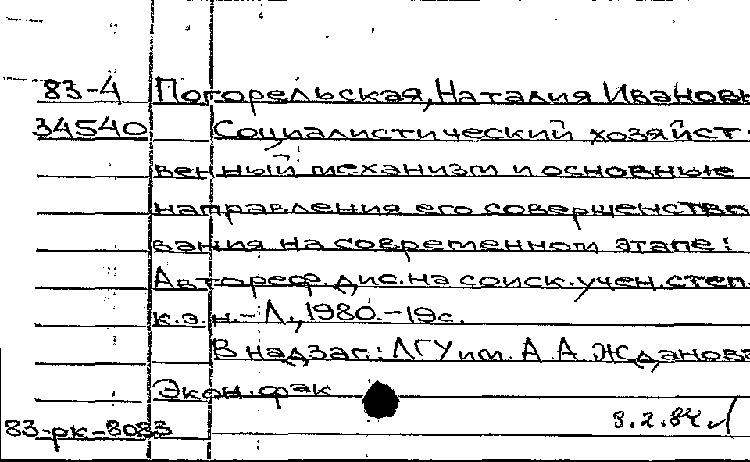 83-4 Погорельская, Наталия Ивановн
34540 Социалистический хозяйст-
венный механизм и основные
направления его совершенство
вания на современном этапе:
Автореф. дис. на соиск. учен. степ.
к.э.н. - Л., 1980. - 19с.
В надзаг.: ЛГУ им. А. А. Жданова
Экон. фак
83-рк-8083 8.2.84